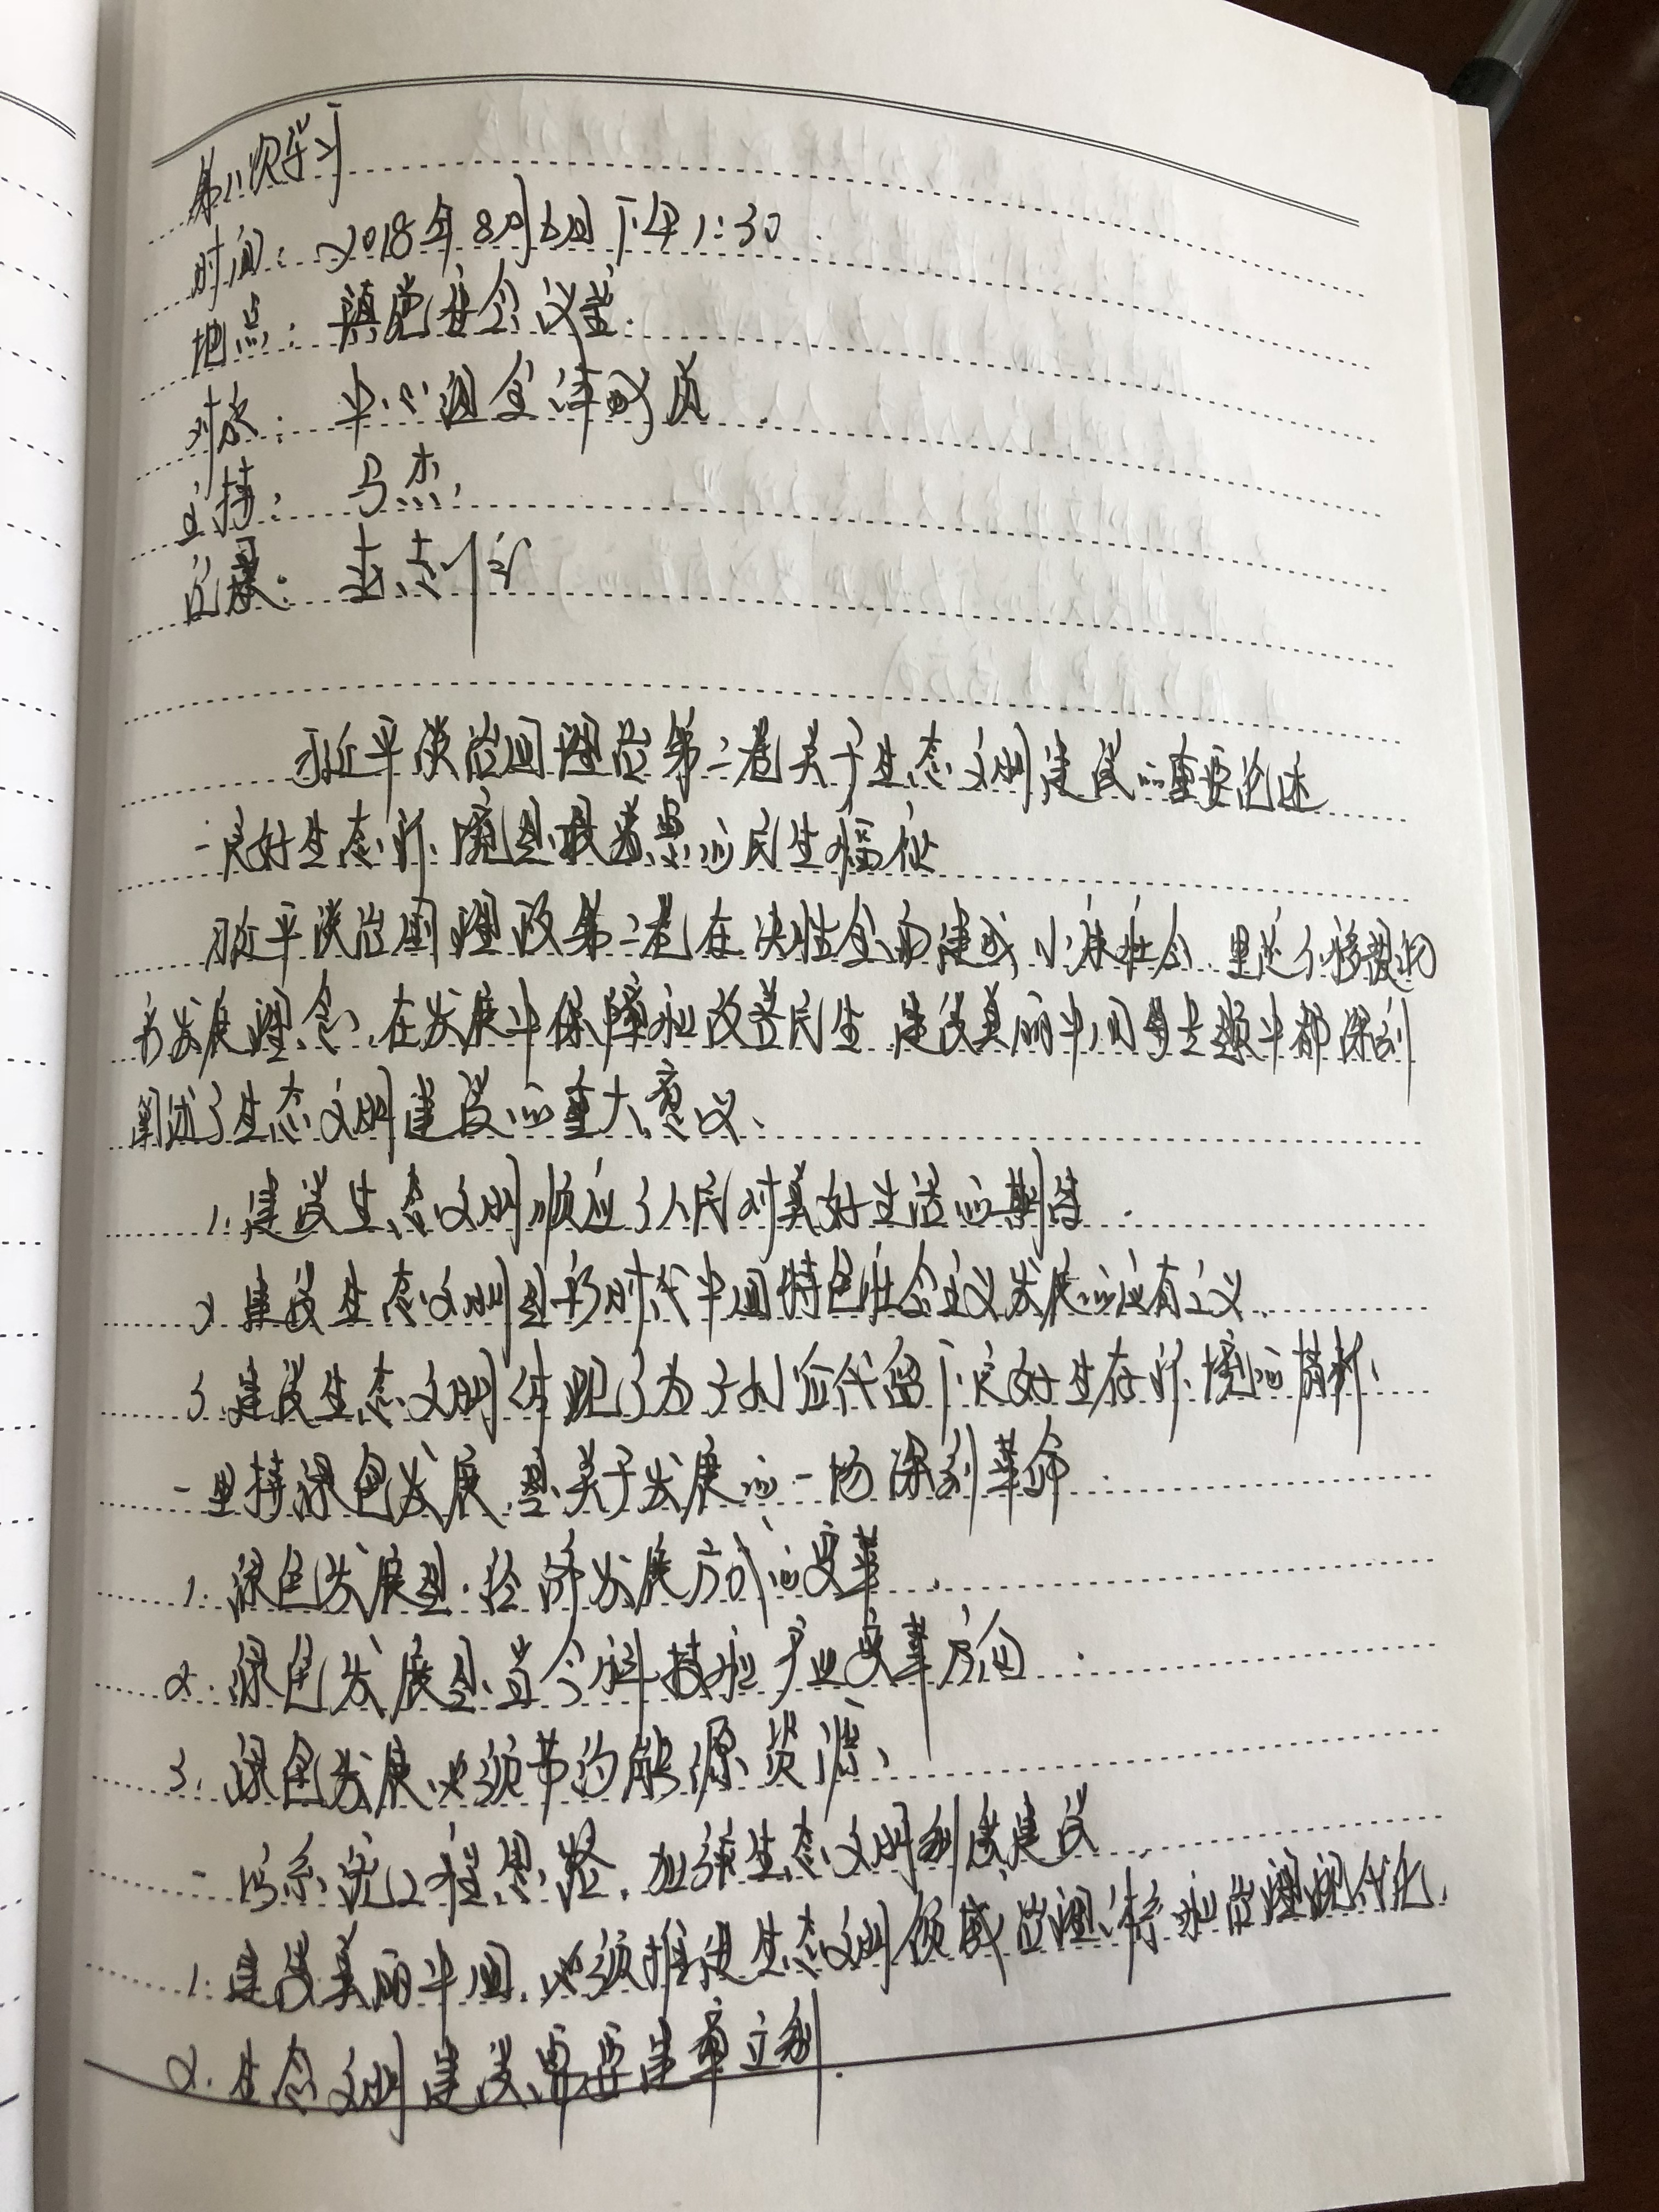 第11次学习
时间：2018年8月6日下午1:30
地点：镇党委会议室
对象：中心组全体成员
主持：马杰
记录：
习近平谈治国理治第二卷关于生态文明建设的重要论述
一良好生态环境是最普惠的民生福祉
习近平谈治国理政第二卷在决胜全面建成小康社会、坚定不移贯彻
新发展理念、在发展中保障和改善民生、建设美丽中国多专题中都深刻
阐述了生态文明建设的重大意义、
1.建设生态文明顺应了人民对美好生活的期待.
2.建设生态文明是新时代中国特色社会主义发展的应有之义.
3.建设生态文明体现了为子孙后代留下良好生存环境的情怀、
一坚持绿色发展是关于发展的一场深刻革命.
1.绿色发展是经济发展方式的变革.
2.绿色发展是当今科技和产业变革方向.
3.绿色发展必须节约能源资源、
一以系统工程思路,加强生态文明制度建设
1.建设美丽中国,必须推进生态文明领域治理体系和治理现代化.
2.生态文明建设需要建章立制.